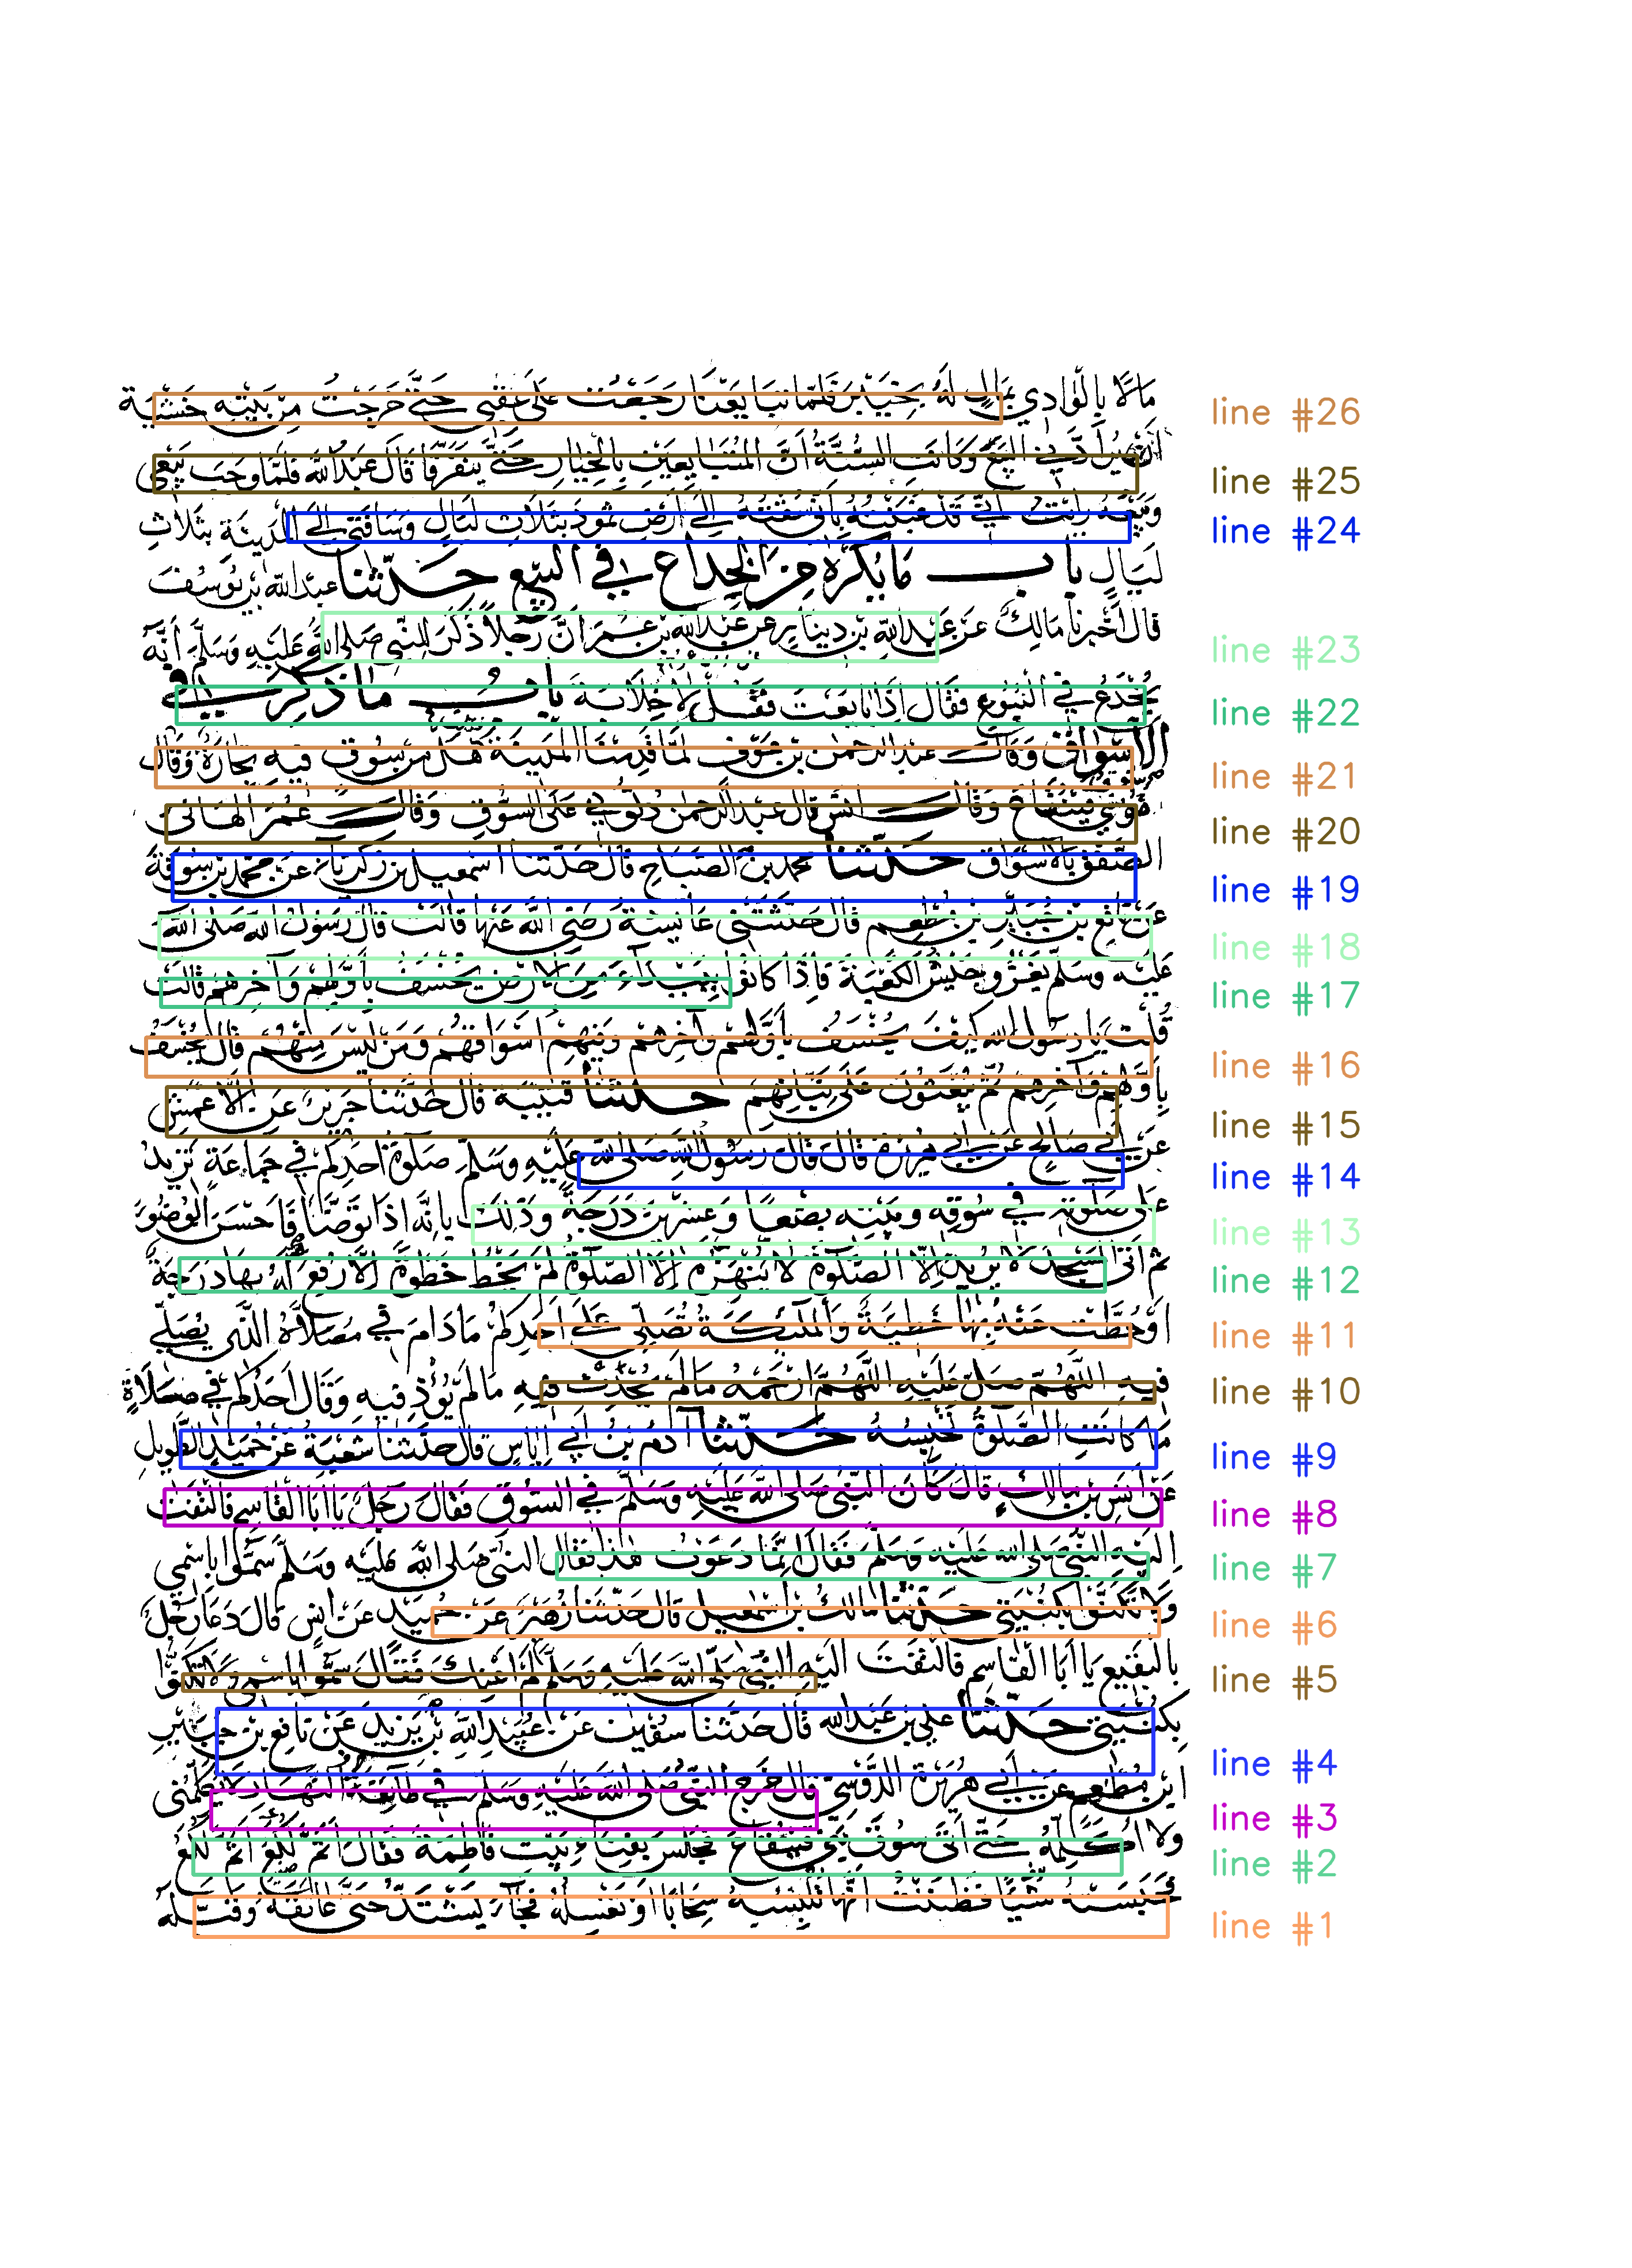 مَالًا بِالْوَادِي بِمَالٍ لَهُ بِخَيْبَرَ فَلَمَّا تَبَايَعْنَا رَجَعْتُ عَلَى عَقِبِي حَتَّى خَرَجْتُ مِنْ بَيْتِهِ خَشْيَةَ line #26
الْبَيْعَ وَكَانَتِ السُّنَّةُ أَنَّ الْمُتَبَايِعَيْنِ بِالْخِيَارِ حَتَّى يَتَفَرَّقَا قَالَ عَبْدُ اللَّهِ فَلَمَّا وَجَبَ بَيْعِي line #25
وَبَيْعُهُ رَأَيْتُ أَنِّي قَدْ غَبَنْتُهُ بِأَنِّي سُقْتُهُ إِلَى أَرْضِ ثَمُودَ بِثَلَاثِ لَيَالٍ وَسَاقَنِي إِلَى الْمَدِينَةِ بِثَلَاثِ line #24
لَيَالٍ باب مَا يُكْرَهُ مِنَ الْخِدَاعِ فِي الْبَيْعِ حَدَّثَنَا عبد الله بْنُ يُوسُفَ
قَالَ أَخْبَرَنَا مَالِكٌ عَنْ عَبْدِ اللَّهِ بْنِ دِينَارٍ عَنْ عَبْدِ اللَّهِ بْنِ عُمَرَ أَنَّ رَجُلًا ذَكَرَ لِلنَّبِيِّ صَلَى اللَّهُ عَلَيْهِ وَسَلَّمَ أَنَّهُ line #23
يُخْدَعُ فِي الْبُيُوعِ فَقَالَ إِذَا بَايَعْتَ فَقُلْ لَا خِلَابَةَ بَابُ مَا ذُكِرَ فِي line #22
الْأَسْوَاقِ وَقَالَ عبد الرحمن بن عَوْفٍ لَمَّا قَدِمْنَا الْمَدِينَةَ هَلْ مِنْ سُوقٍ فِيهِ تِجَارَةٌ وَقَالَ line #21
سُوقُ قَيْنُقَاعَ وَقَالَ أَنَسٌ قَالَ عبد الرحمن دُلُّونِي عَلَى السُّوقِ وَقَالَ عُمَرُ أَلْهَانِي line #20
الصَّفْقُ بِالْأَسْوَاقِ حَدَّثَنَا محمد بن الصَّبَّاحِ قَالَ حَدَّثَنَا اسْمَعِيلُ بْنُ زَكَرِيَّاءَ عَنْ مُحَمَّدِ بْنِ سُوقَةَ line #19
عَنْ نَافِعِ بْنِ جُبَيْرِ بْنِ مُطْعِمٍ قَالَ حَدَّثَتْنِي عَائِشَةُ رَضِيَ اللَّهُ عَنْهَا قَالَتْ قَالَ رَسُولُ اللَّهِ صَلَى اللَّهُ line #18
عَلَيْهِ وَسَلَّمَ يَغْزُو جَيْشٌ الْكَعْبَةَ فَإِذَا كَانُوا بِبَيْدَاءَ مِنَ الْأَرْضِ يُخْسَفُ بِأَوَّلِهِمْ وَآخِرِهِمْ قَالَتْ line #17
قُلْتُ يَا رَسُولَ اللَّهِ كَيْفَ يُخْسَفُ بِأَوَّلِهِمْ وَآخِرِهِمْ وَفِيهِمْ أَسْوَاقُهُمْ وَمَنْ لَيْسَ مِنْهُمْ قَالَ يُخْسَفُ line #16
بِأَوَّلِهِمْ وَآخِرِهِمْ ثُمَّ يُبْعَثُونَ عَلَى نِيَّاتِهِمْ حَدَّثَنَا قُتَيْبَةُ قَالَ حَدَّثَنَا جَرِيرٌ عَنِ الْأَعْمَشِ line #15
عَنْ أَبِي صَالِحٍ عَنْ أَبِي هُرَيْرَةَ قَالَ قَالَ رَسُولُ اللَّهِ صَلَى اللَّهُ عَلَيْهِ وَسَلَّمَ صَلَوةُ أَحَدِكُمْ فِي جَمَاعَةٍ تَزِيدُ line #14
عَلَى صَلَوتِهِ فِي سُوقِهِ وَبَيْتِهِ بِضْعًا وَعِشْرِينَ دَرَجَةً وَذَلِكَ بِأَنَّهُ إِذَا تَوَضَّأَ فَأَحْسَنَ الْوُضُوءَ line #13
ثُمَّ أَتَى الْمَسْجِدَ لَا يُرِيدُ إِلَّا الصَّلَوةَ لَا يَنْهَزُهُ إِلَّا الصَّلَوةُ لَمْ يَخْطُ خَطْوَةً إِلَّا رُفِعَ لَهُ بِهَا دَرَجَةً line #12
أَوْ حُطَّتْ عَنْهُ بِهَا خَطِيئَةٌ وَالْمَلَئِكَةُ تُصَلِّي عَلَى أَحَدِكُمْ مَا دَامَ فِي مُصَلَّاهُ الَّذِي يُصَلِّي line #11
فِيهِ اللَّهُمَّ صَلِّ عَلَيْهِ اللَّهُمَّ ارْحَمْهُ مَا لَمْ يُحْدِثْ فِيهِ مَا لَمْ يُؤْذِ فِيهِ وَقَالَ أَحَدُكُمْ فِي صَلَاةٍ line #10
مَا كَانَتِ الصَّلَوةُ تَحْبِسُهُ حَدَّثَنَا آدَمُ بْنُ أَبِي إِيَاسٍ قَالَ حَدَّثَنَا شُعْبَةُ عَنْ حُمَيْدٍ الطَّوِيلِ line #9
عَنْ أَنَسِ بْنِ مَالِكٍ قَالَ كَانَ النَّبِيُّ صَلَى اللَّهُ عَلَيْهِ وَسَلَّمَ فِي السُّوقِ فَقَالَ رَجُلٌ يَا أَبَا الْقَاسِمِ فَالْتَفَتَ line #8
إِلَيْهِ النَّبِيُّ صَلَى اللَّهُ عَلَيْهِ وَسَلَّمَ فَقَالَ إِنَّمَا دَعَوْتُ هَذَا فَقَالَ النَّبِيُّ صَلَى اللَّهُ عَلَيْهِ وَسَلَّمَ سَمُّوا بِاسْمِي line #7
وَلَا تَكَنَّوْا بِكُنْيَتِي حَدَّثَنَا مَالِكُ بْنُ اسْمَعِيلَ قَالَ حَدَّثَنَا زُهَيْرٌ عَنْ حُمَيْدٍ عَنْ أَنَسٍ قَالَ دَعَا رَجُلٌ line #6
بِالْبَقِيعِ يَا أَبَا الْقَاسِمِ فَالْتَفَتَ إِلَيْهِ النَّبِيُّ صَلَّى اللَّهُ عَلَيْهِ وَسَلَّمَ لَمْ أَعْنِكَ فَقَالَ سَمُّوا بِاسْمِي وَلَا تَكَنَّوْا line #5
بِكُنْيَتِي حَدَّثَنَا عَلِيُّ بْنُ عَبْدِ اللَّهِ قَالَ حَدَّثَنَا سُفْيَانُ عَنْ عُبَيْدِ اللَّهِ بْنِ يَزِيدَ عَنْ نَافِعِ بْنِ جُبَيْرِ line #4
ابْنِ مُطْعِمٍ عَنْ أَبِي هُرَيْرَةَ الدَّوْسِيِّ قَالَ خَرَجَ النَّبِيُّ صَلَى اللَّهُ عَلَيْهِ وَسَلَّمَ فِي طَائِفَةِ النَّهَارِ لَا يُكَلِّمُنِي line #3
وَلَا أُكَلِّمُهُ حَتَّى أَتَى سُوقَ بَنِي قَيْنُقَاعَ فَجَلَسَ بِفِنَاءِ بَيْتِ فَاطِمَةَ فَقَالَ أَثَمَّ لُكَعُ أَثَمَّ لُكَعُ line #2
فَحَبَسَتْهُ شَيْئًا فَظَنَنْتُ أَنَّهَا تُلْبِسُهُ سِخَابًا أَوْ تُغَسِّلُهُ فَجَاءَ يَشْتَدُّ حَتَّى عَانَقَهُ وَقَبَّلَهُ line #1